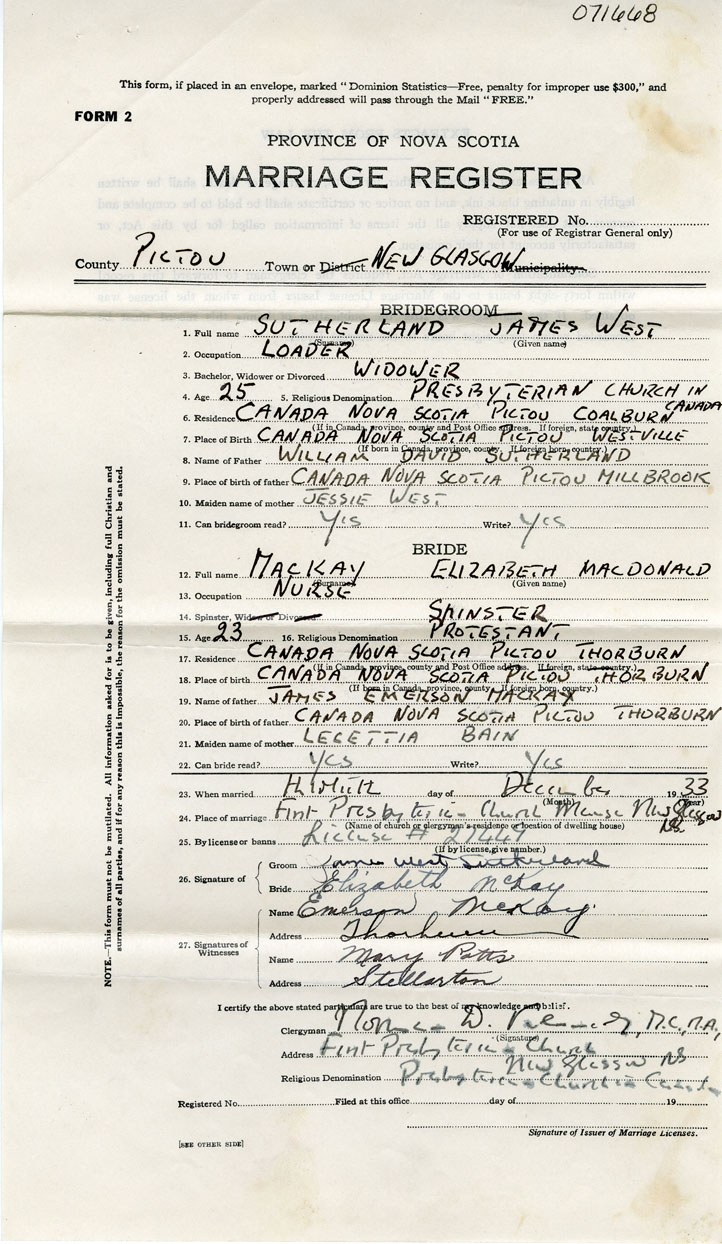 071668
This form, if placed in an envelope, marked "Dominion Statistics—Free, penalty for improper use $300," and
properly addressed will pass through the Mail "FREE."
FORM 2
PROVINCE OF NOVA SCOTIA
MARRIAGE REGISTER
REGISTERED No.
(For use of Registrar General only)
County PICTOU Town or District NEW GLASGOW Municipality
BRIDEGROOM
1. Full name SUTHERLAND JAMES WEST
(Surname) (Given name)
2. Occupation LOADER
3. Bachelor, Widower or Divorced WIDOWER
4. Age 25 5. Religious Denomination PRESBYTERIAN CHURCH IN CANADA
6. Residence CANADA NOVA SCOTIA PICTOU COALBURN
(If in Canada, province, county and Post Office address. If foreign, state country.)
7. Place of Birth CANADA NOVA SCOTIA PICTOU WESTVILLE
(If born in Canada, province, county. If foreign born, country.)
8. Name of Father WILLIAM DAVID SUTHERLAND
9. Place of birth of father CANADA NOVA SCOTIA PICTOU MILLBROOK
10. Maiden name of mother JESSIE WEST
11. Can bridegroom read? Yes Write? Yes
BRIDE
12. Full name MACKAY ELIZABETH MACDONALD
(Surname) (Given name)
13. Occupation NURSE
14. Spinster, Widow or Divorced SPINSTER
15. Age 23 16. Religious Denomination PROTESTANT
17. Residence CANADA NOVA SCOTIA PICTOU THORBURN
(If in Canada, province, county and Post Office address. If foreign, state country.)
18. Place of birth CANADA NOVA SCOTIA PICTOU THORBURN
(If born in Canada, province, county. If foreign born, country.)
19. Name of father JAMES EMERSON MACKAY
20. Place of birth of father CANADA NOVA SCOTIA PICTOU THORBURN
21. Maiden name of mother LECETTIA BAIN
22. Can bride read? Yes Write? Yes
23. When married day of December 1933
(Month) (Year)
24. Place of marriage First Presbyterian Church Manse New Glasgow NS
(Name of church or clergyman's residence or location of dwelling house)
25. By license or banns License #
(If by license, give number.)
26. Signature of
Groom James West Sutherland
Bride Elizabeth McKay
27. Signatures of Witnesses
Name Emerson McKay
Address Thorburn
Name Mary Potts
Address Stellarton
I certify the above stated particulars are true to the best of my knowledge and belief.
Clergyman D. M.C., M.A.,
(Signature)
Address First Presbyterian Church
New Glasgow NS
Religious Denomination Presbyterian Church in Canada
Registered No. Filed at this office day of 19
Signature of Issuer of Marriage Licenses.
[SEE OTHER SIDE]
NOTE.—This form must not be mutilated. All information asked for is to be given, including full Christian and
surnames of all parties, and if for any reason this is impossible, the reason for the omission must be stated.